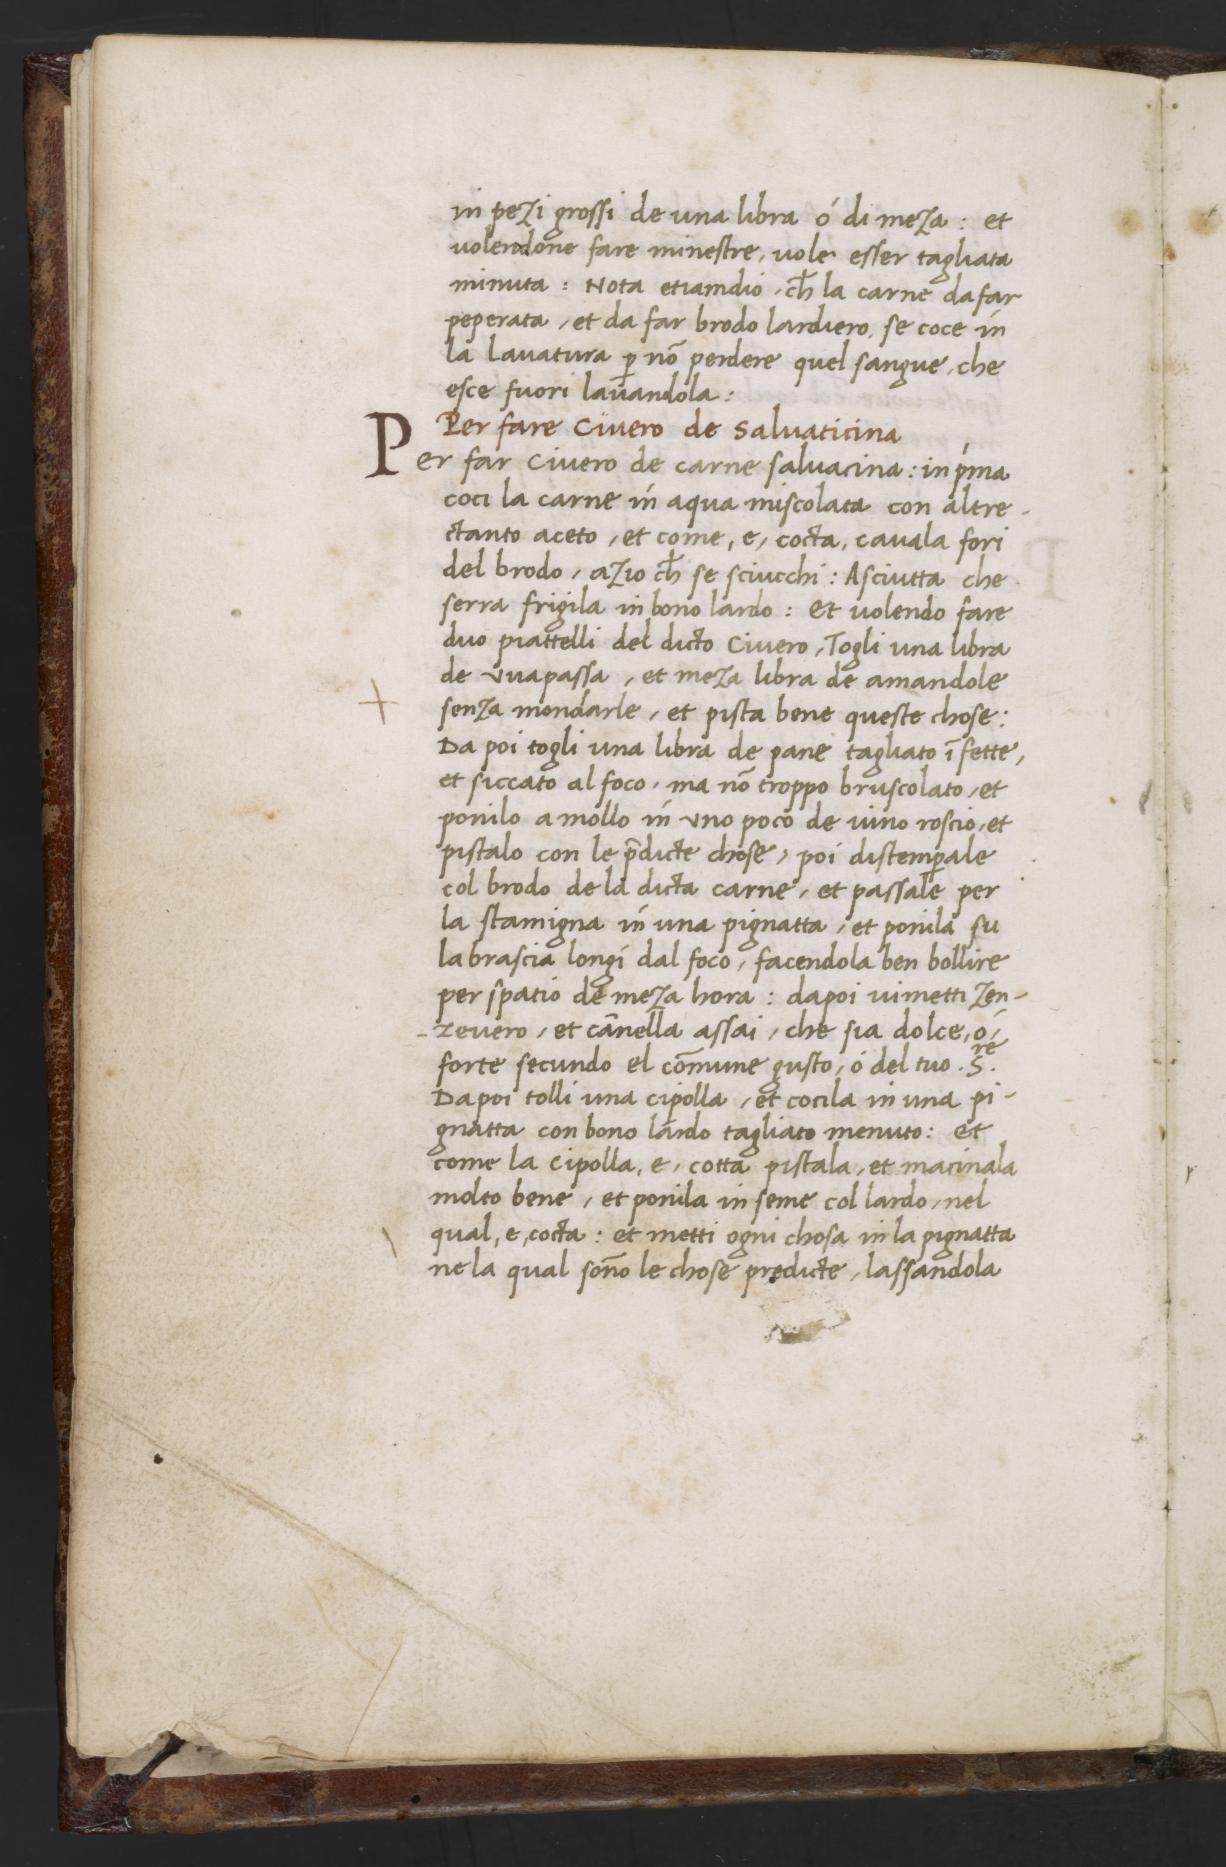 in pezi grossi de una libra ó di meza : et
volendone fare minestre, vole esser tagliata
minuta : Nota etiamdio, ch̄ la carne da far
peperata, et da far brodo lardiero, se coce in
la lavatura ꝑ nō perdere quel sangue, che
esce fuori lavandola :
Per fare Civero de Salvaticina
Per far Civero de carne salvacina : in p̄ma
coci la carne in aqua miscolata con altre-
ctanto aceto, et come, e, cocta, cavala fori
del brodo, azio ch̄ se sciucchi : Asciutta che
serra frigila in bono lardo : et volendo fare
duo piattelli del dicto Civero, Togli una libra
de uvapassa, et meza libra de amandole
senza mondarle, et pista bene queste chose :
Da poi togli una libra de pane tagliato ī fette,
et siccato al foco, ma nō troppo bruscolato, et
ponilo a mollo in uno poco de vino roscio, et
pistalo con le p̄dicte chose, poi distemꝑale
col brodo de la dicta carne, et passale per
la stamigna in una pignatta, et ponila su
la brascia longi dal foco, facendola ben bollire
per spatio de meza hora : dapoi vi metti zen-
-zevero, et cānella assai, che sia dolce, o,
forte secundo el cōmune gusto, ó del tuo .S.re
Dapoi tolli una cipolla, et cocila in una pi-
gnatta con bono lardo tagliato menuto : et
come la cipolla, e, cotta pistala, et macinala
molto bene, et ponila in seme col lardo, nel
qual, e, cocta : et metti ogni chosa in la pignatta
ne la qual sōno le chose predicte, lassandola